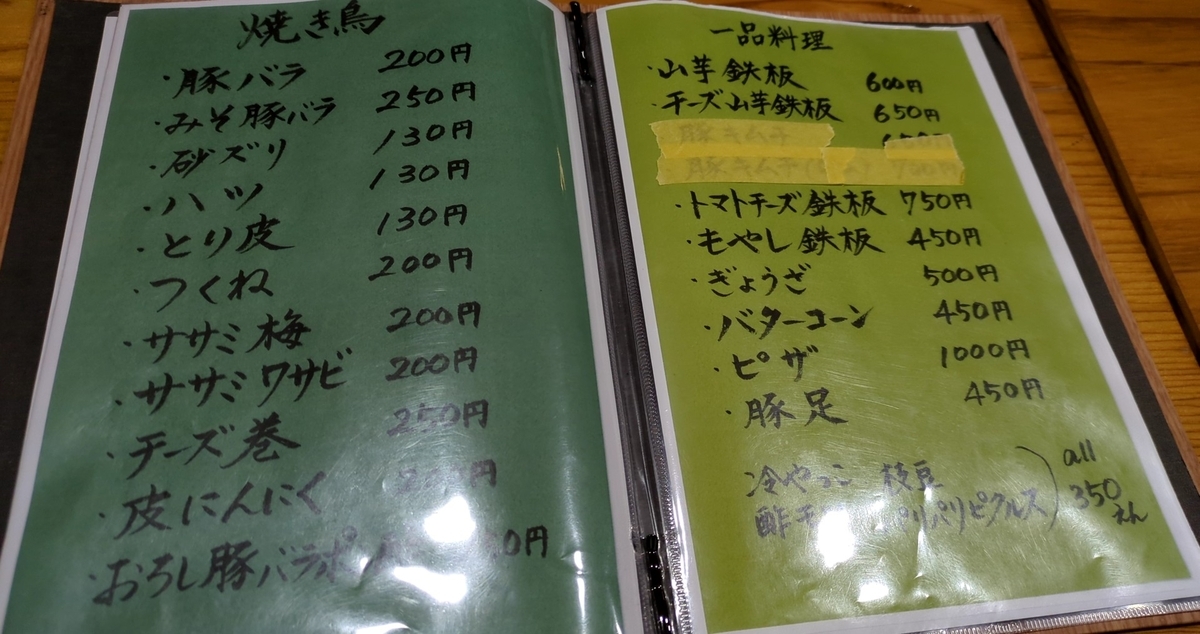 焼き鳥
・豚バラ 200円
・みそ豚バラ 250円
・砂ズリ 130円
・ハツ 130円
・とり皮 130円
・つくね 200円
・ササミ梅 200円
・ササミワサビ 200円
・チーズ巻 250円
・皮にんにく 円
・おろし豚バラポン 0円
一品料理
・山芋鉄板 600円
・チーズ山芋鉄板 650円
豚キムチ
豚キムチ
・トマトチーズ鉄板 750円
・もやし鉄板 450円
・ぎょうざ 500円
・バターコーン 450円
・ピザ 1000円
・豚足 450円
冷やっこ 枝豆
酢 パリパリピクルス
all
350
えん